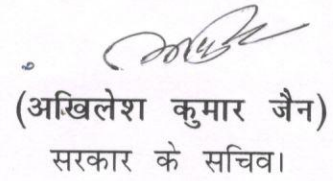 (अखिलेश कुमार जैन)
सरकार के सचिव।